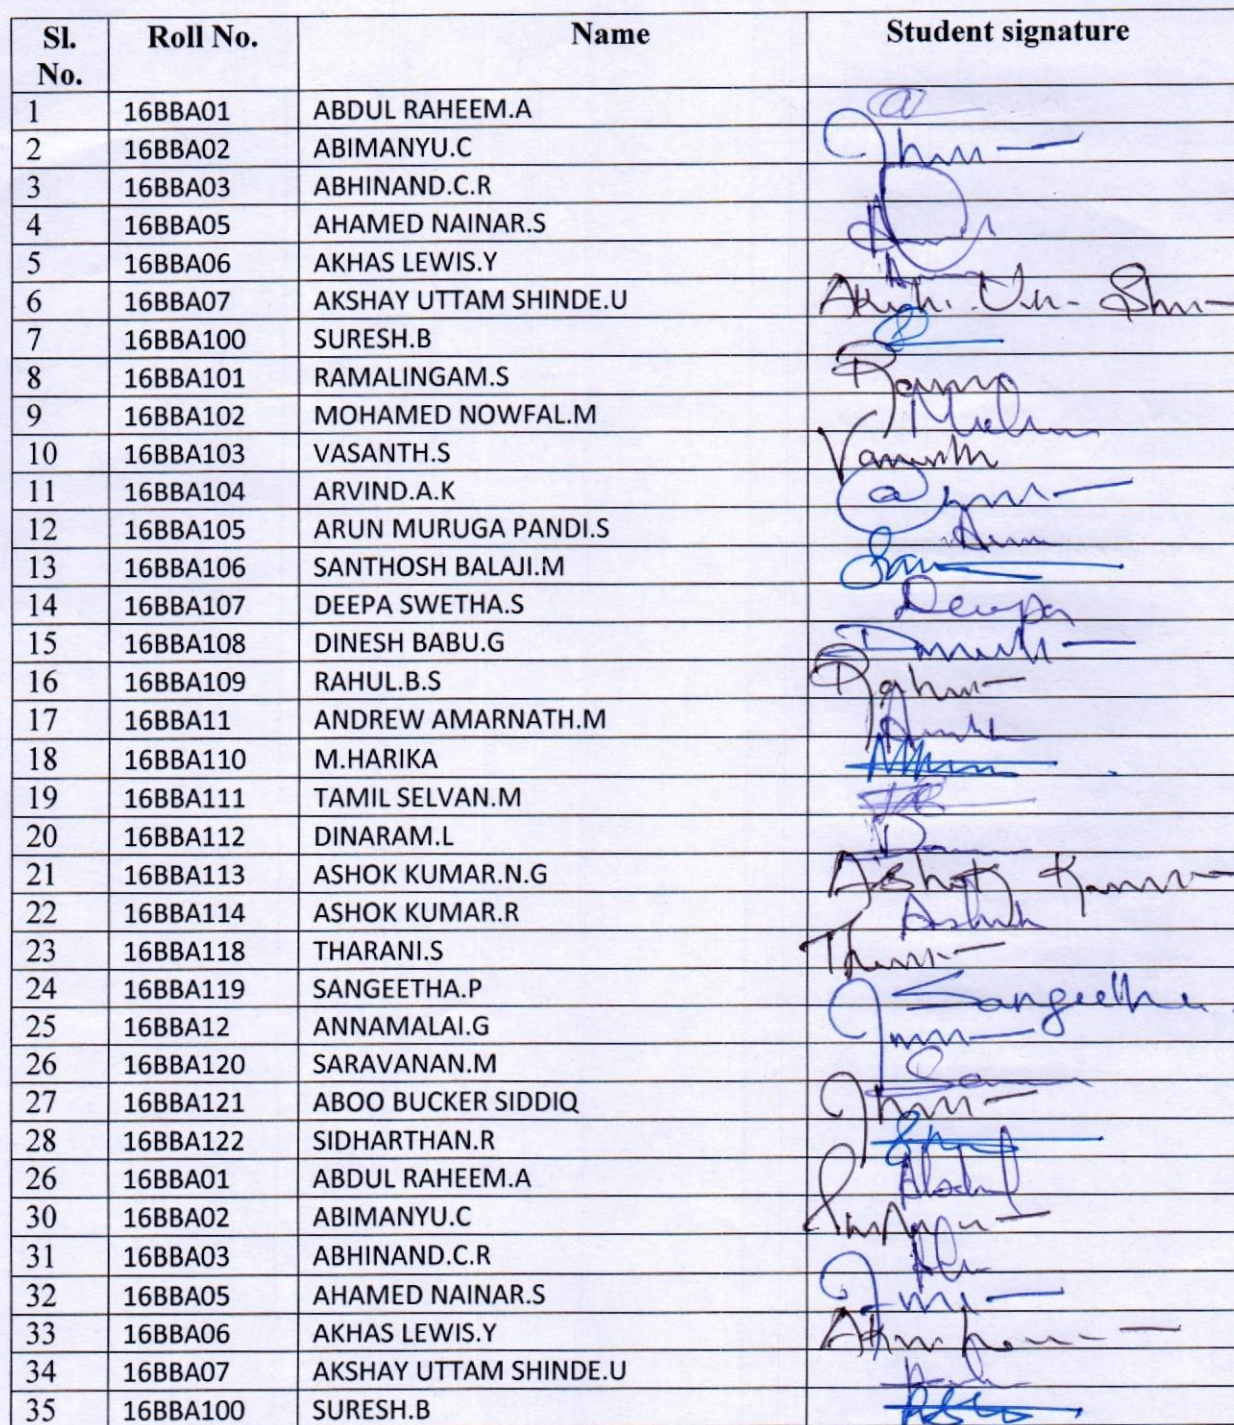 Sl. No. Roll No. Name Student signature
1 16BBA01 ABDUL RAHEEM.A
2 16BBA02 ABIMANYU.C
3 16BBA03 ABHINAND.C.R
4 16BBA05 AHAMED NAINAR.S
5 16BBA06 AKHAS LEWIS.Y
6 16BBA07 AKSHAY UTTAM SHINDE.U
7 16BBA100 SURESH.B
8 16BBA101 RAMALINGAM.S
9 16BBA102 MOHAMED NOWFAL.M
10 16BBA103 VASANTH.S
11 16BBA104 ARVIND.A.K
12 16BBA105 ARUN MURUGA PANDI.S
13 16BBA106 SANTHOSH BALAJI.M
14 16BBA107 DEEPA SWETHA.S Deepa
15 16BBA108 DINESH BABU.G
16 16BBA109 RAHUL.B.S
17 16BBA11 ANDREW AMARNATH.M
18 16BBA110 M.HARIKA
19 16BBA111 TAMIL SELVAN.M
20 16BBA112 DINARAM.L
21 16BBA113 ASHOK KUMAR.N.G Ashok
22 16BBA114 ASHOK KUMAR.R
23 16BBA118 THARANI.S
24 16BBA119 SANGEETHA.P Sangeetha
25 16BBA12 ANNAMALAI.G
26 16BBA120 SARAVANAN.M
27 16BBA121 ABOO BUCKER SIDDIQ
28 16BBA122 SIDHARTHAN.R
26 16BBA01 ABDUL RAHEEM.A Abdul
30 16BBA02 ABIMANYU.C
31 16BBA03 ABHINAND.C.R
32 16BBA05 AHAMED NAINAR.S
33 16BBA06 AKHAS LEWIS.Y
34 16BBA07 AKSHAY UTTAM SHINDE.U
35 16BBA100 SURESH.B